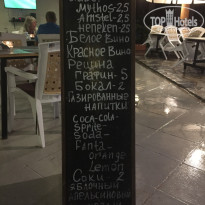 TOP Hotels
Mythos-2,5
Amstel-2,5
Heneken-25
Белое Вино
Красное Вино
Рецина
Графин-5
Бокал-2
Газированные
напитки
Coca-cola-
Sprite-
Soda-
Fanta-
orange
Lemon
Соки 2
Яблочный
Апельсиновый